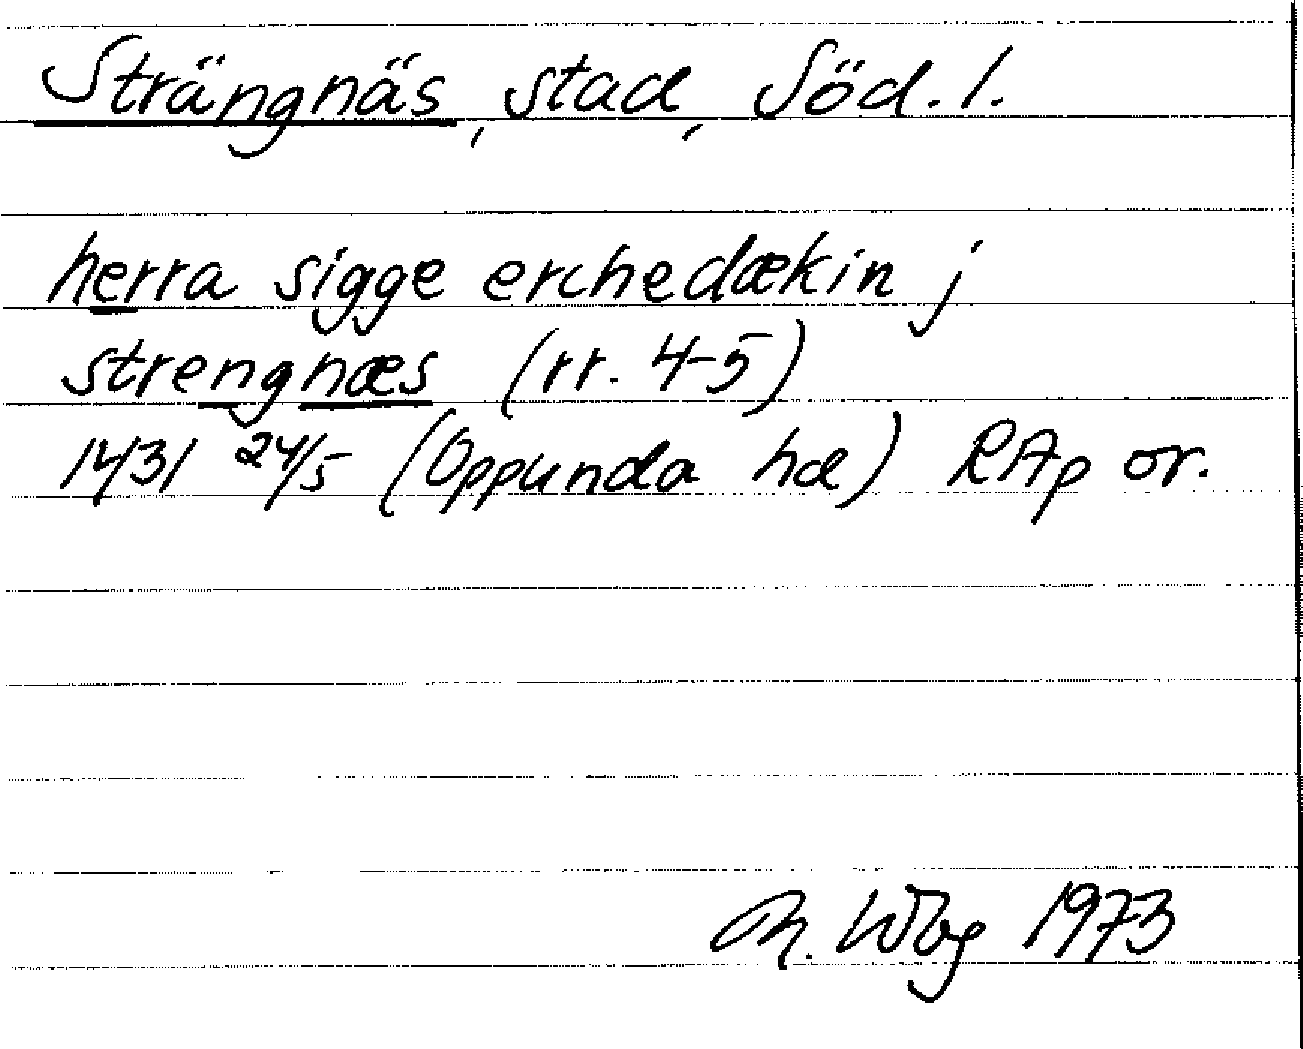 Strängnäs, stad, Söd. l.
herra sigge erchedækin j
strengnæs (rr. 4-5)
1431 24/5 (Oppunda hd) RAp or.
M. Wbg 1973